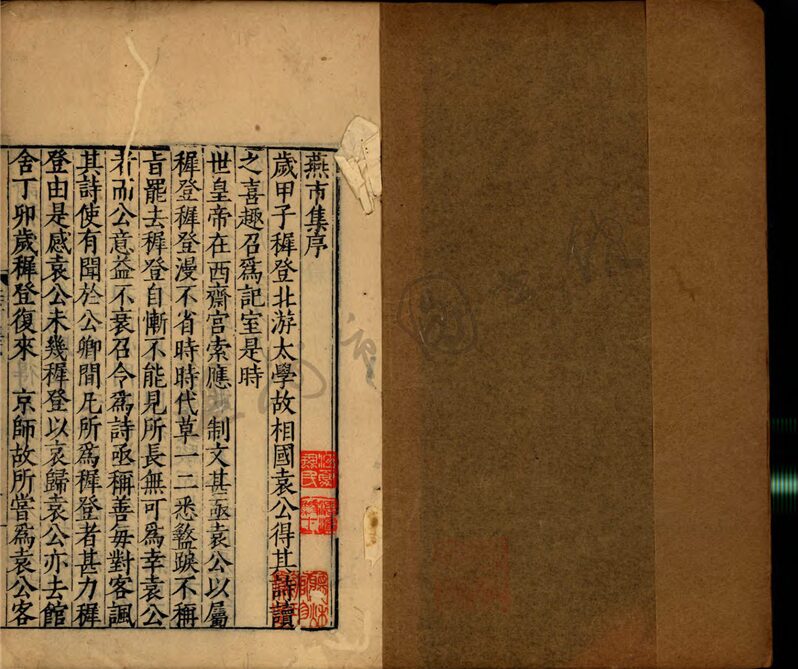 燕市集序
歲甲子穉登北游太學故相國袁公得其詩讀
之喜趣召爲記室是時
世皇帝在西齋宮索應制文甚亟袁公以屬
穉登穉登漫不省時時代草一二悉盭踧不稱
旨罷去穉登自慚不能見所長無可爲幸袁公
者而公意益不衰召令爲詩亟稱善每對客諷
其詩使有聞於公卿間凡所爲穉登者甚力穉
登由是感袁公未幾穉登以哀歸袁公亦去館
舍丁卯歲穉登復來 京師故所嘗爲袁公客